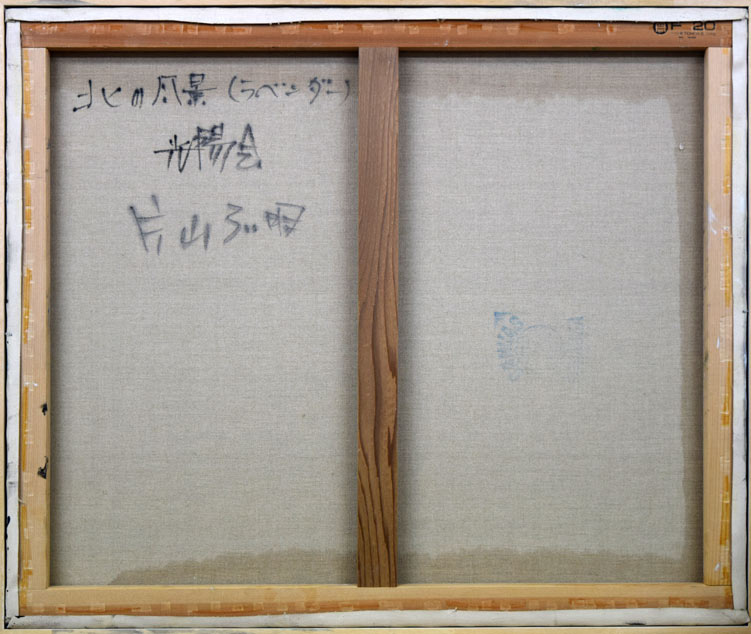 F 20
北の風景(ラベンダー)
光陽会
片山弘明